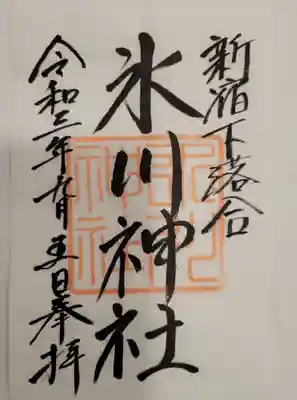 新宿下落合
氷川神社
氷川
神社
令和三年九月五日奉拝